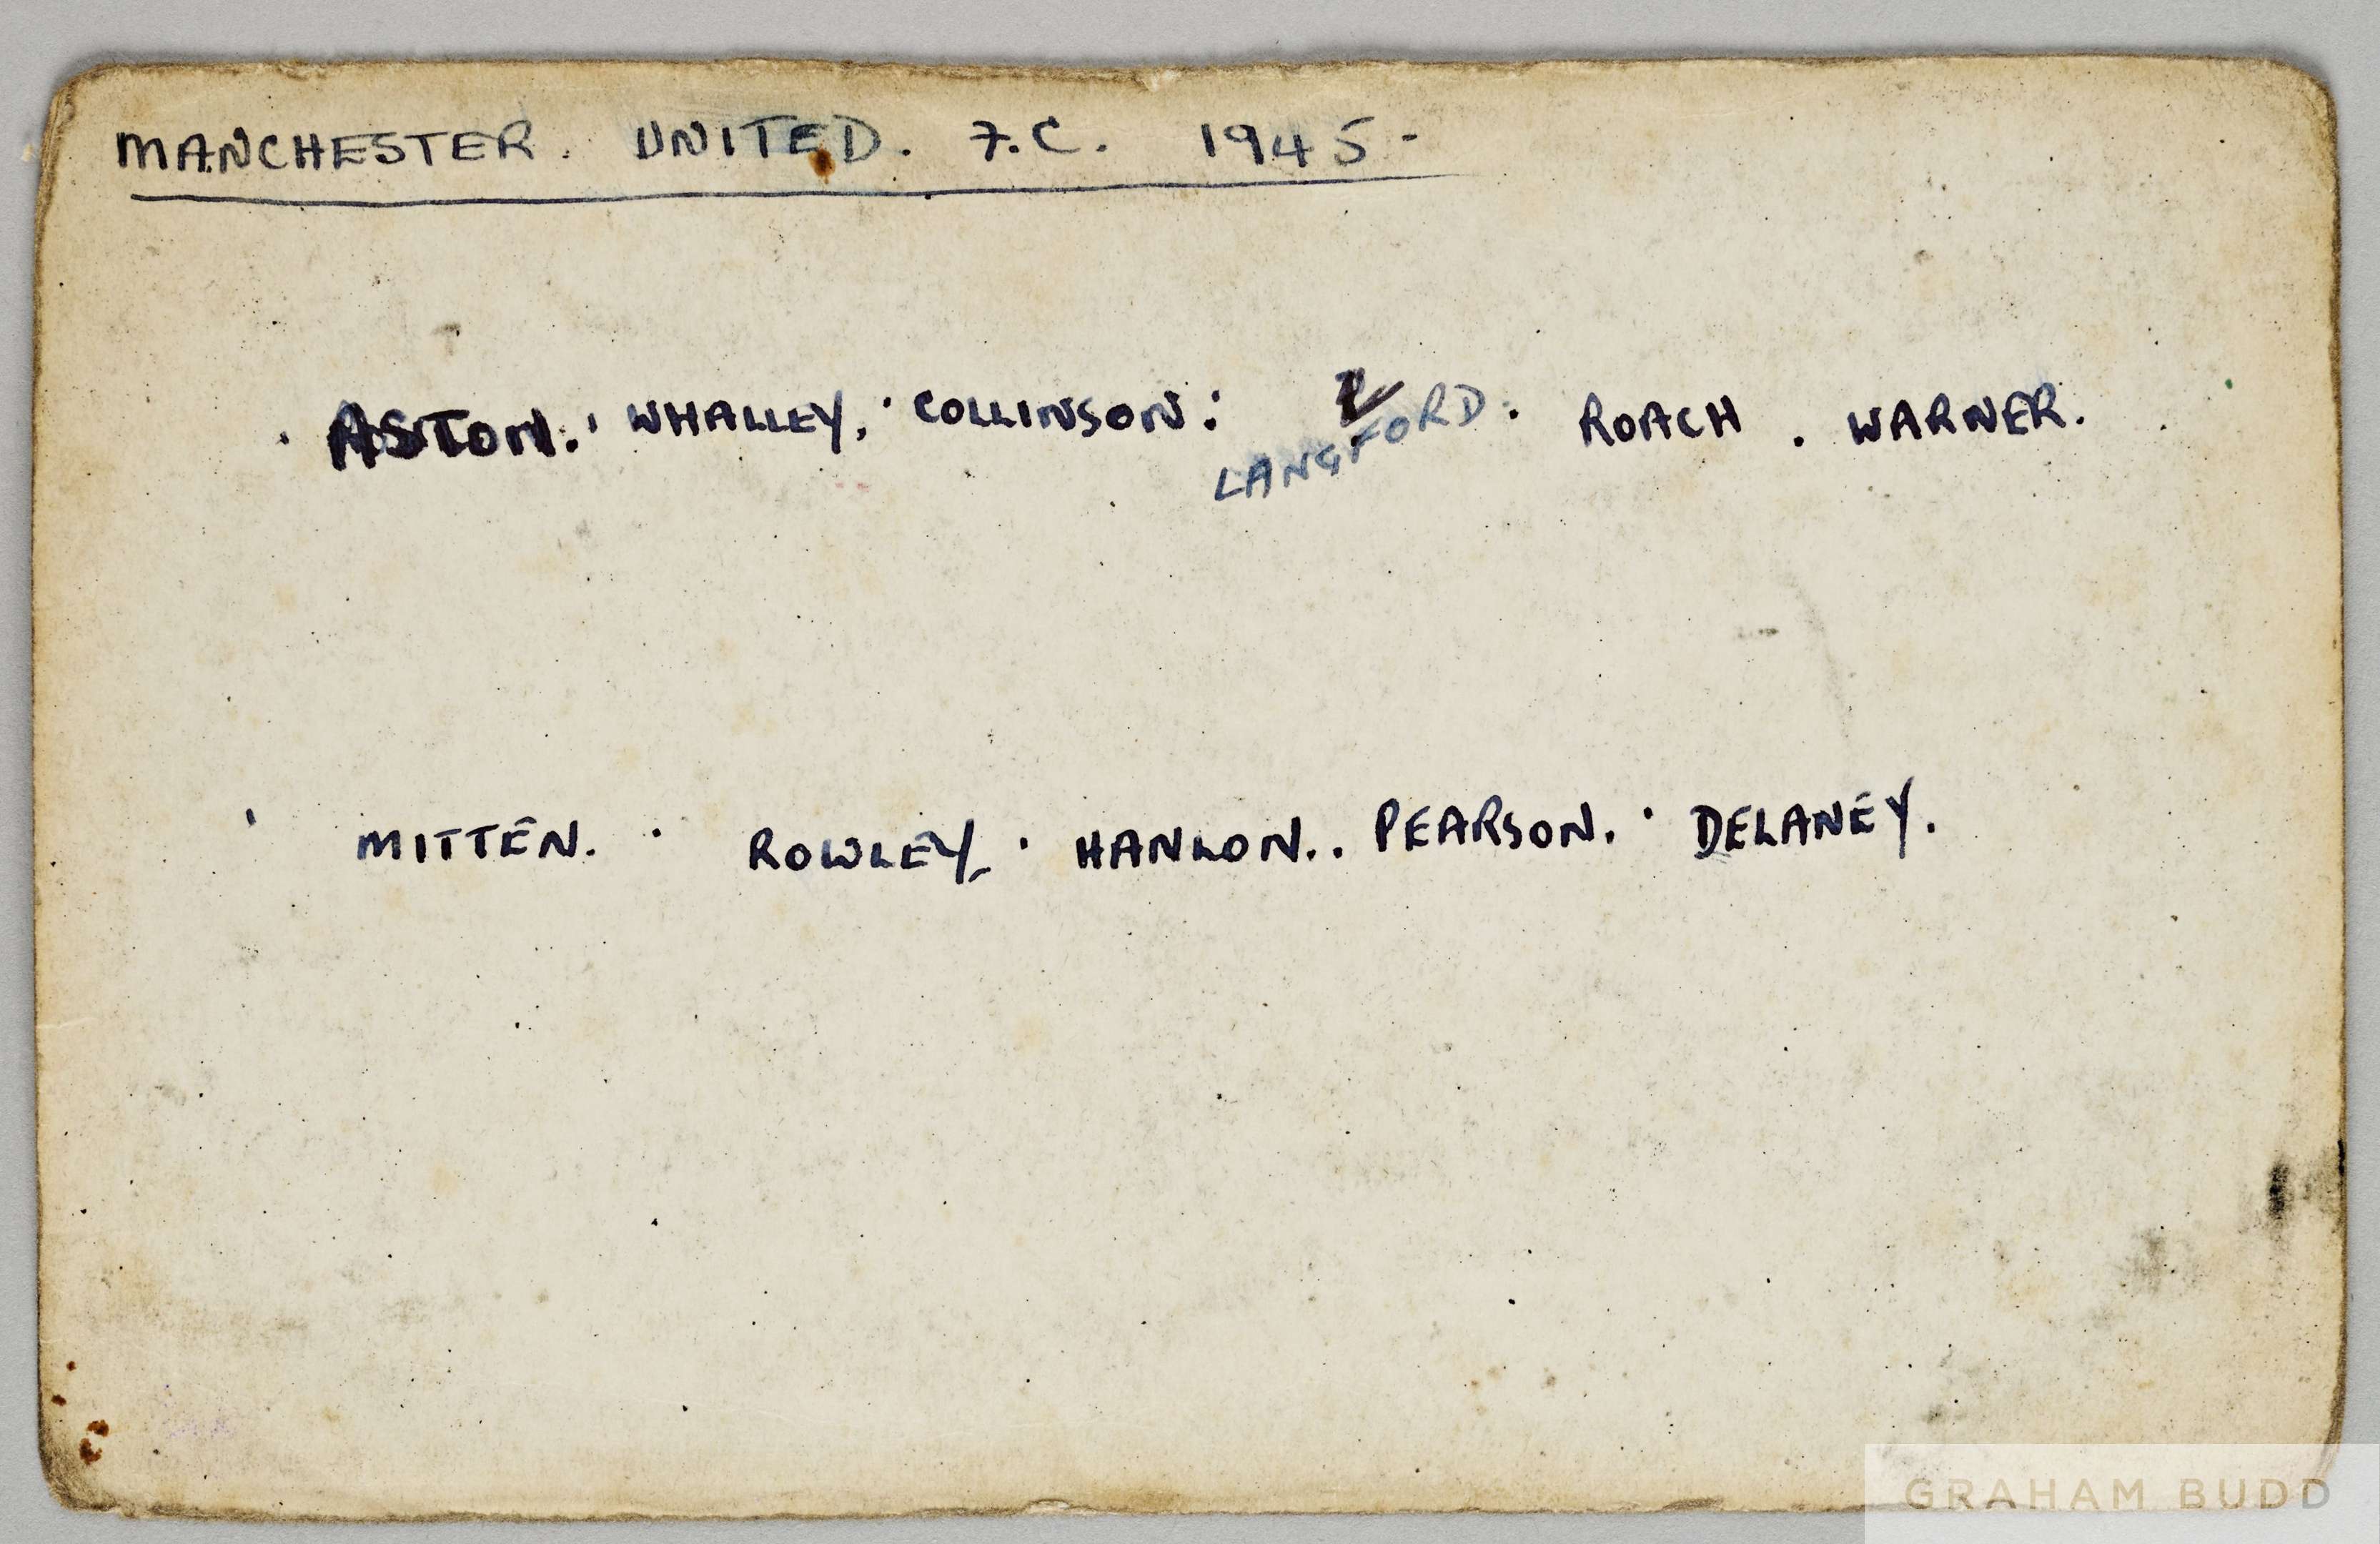 MANCHESTER. UNITED. F.C. 1945-
ASTON. WHALLEY, COLLINSON: LANGFORD. ROACH. WARNER.
MITTEN. ROWLEY. HANLON.. PEARSON. DELANEY.
GRAHAM BUDD